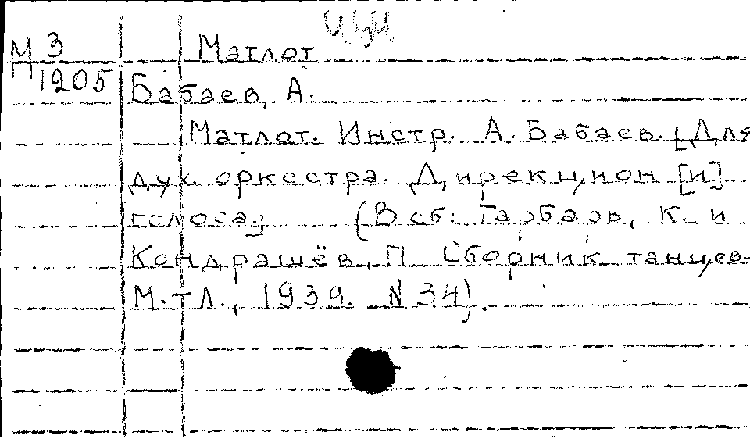 М 3 Матлот
П 1205
Бабаев, А.
Матлот. Инстр. А. Бабаев. [Для
дух. оркестра. Дирекцион [и]
голоса] (В сб: Гарбарь, К. и
Кондрашёв, П. Сборник танцев
М.-Л., 1939. N 34).